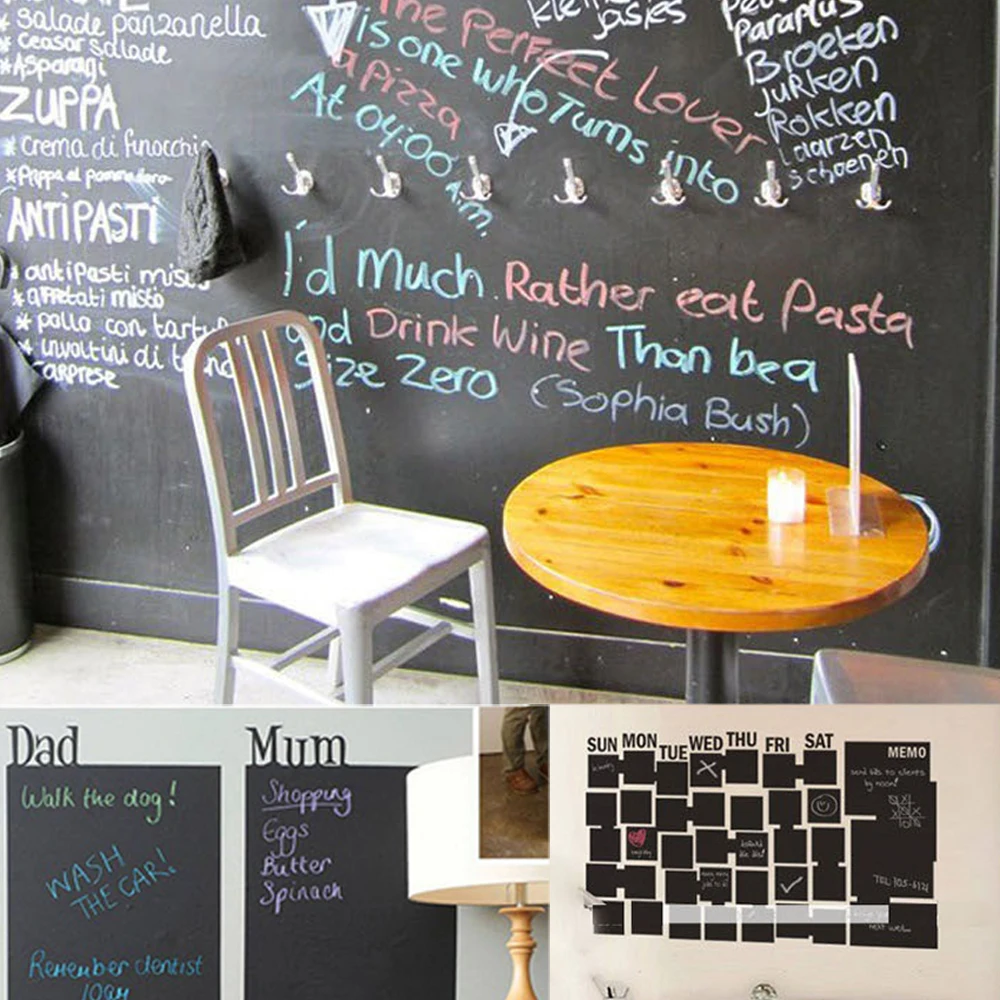 * Salade panzanella
* Ceasar Salade
* Asparagi
ZUPPA
* Crema di finocchio
* Pappa al pommodoro
ANTIPASTI
* antipasti misto
* affettati misto
* pollo con tartufo
* involtini di
caprese
The Perfect Lover
is one who Turns into
a pizza
At 04:00 A.m.
I'd much Rather eat Pasta
and Drink Wine Than be a
Size Zero (Sophia Bush)
jasjes
Paraplus
Broeken
Jurken
Rokken
Laarzen
schoenen
Dad
Walk the dog!
WASH
THE CAR!
Remember dentist
10am
Mum
Shopping
Eggs
Butter
Spinach
SUN MON TUE WED THU FRI SAT
MEMO
send bills to clients
by noon!
TEL: 105-6121
next wed...